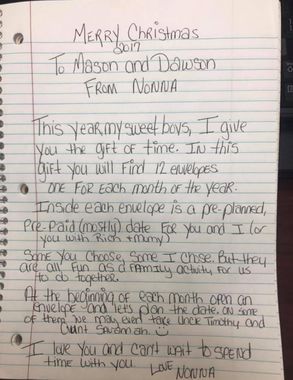 MERRY Christmas
2017
To Mason and Dawson
FROM NONNA
This year, my sweet boys, I give
you the gift of time. In this
gift you will find 12 envelopes
one for each month of the year.
Inside each envelope is a pre-planned,
Pre-Paid (mostly) date for you and I (or
you with Rich + mumy)
Some you choose, some I chose. But they
are all fun as a family activity for us
to do together.
At the beginning of each month open an
envelope and lets plan the date. On some
of them we may even take Uncle Timothy and
Aunt Savannah.
I love you and can't wait to spend
time with you. Love NONNA